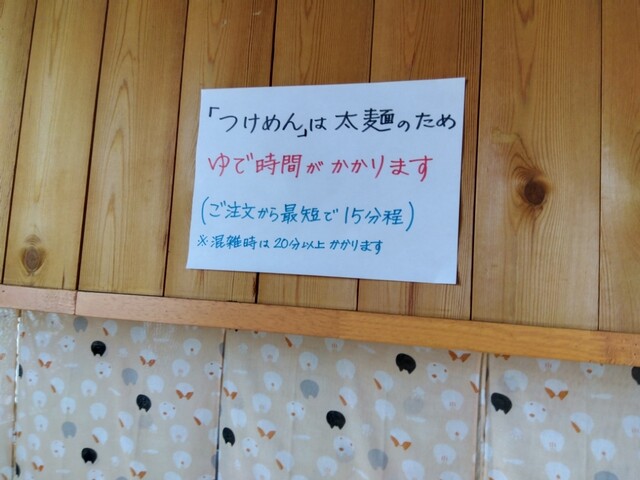 「つけめん」は太麺のため
ゆで時間がかかります
(ご注文から最短で15分程)
※混雑時は20分以上かかります